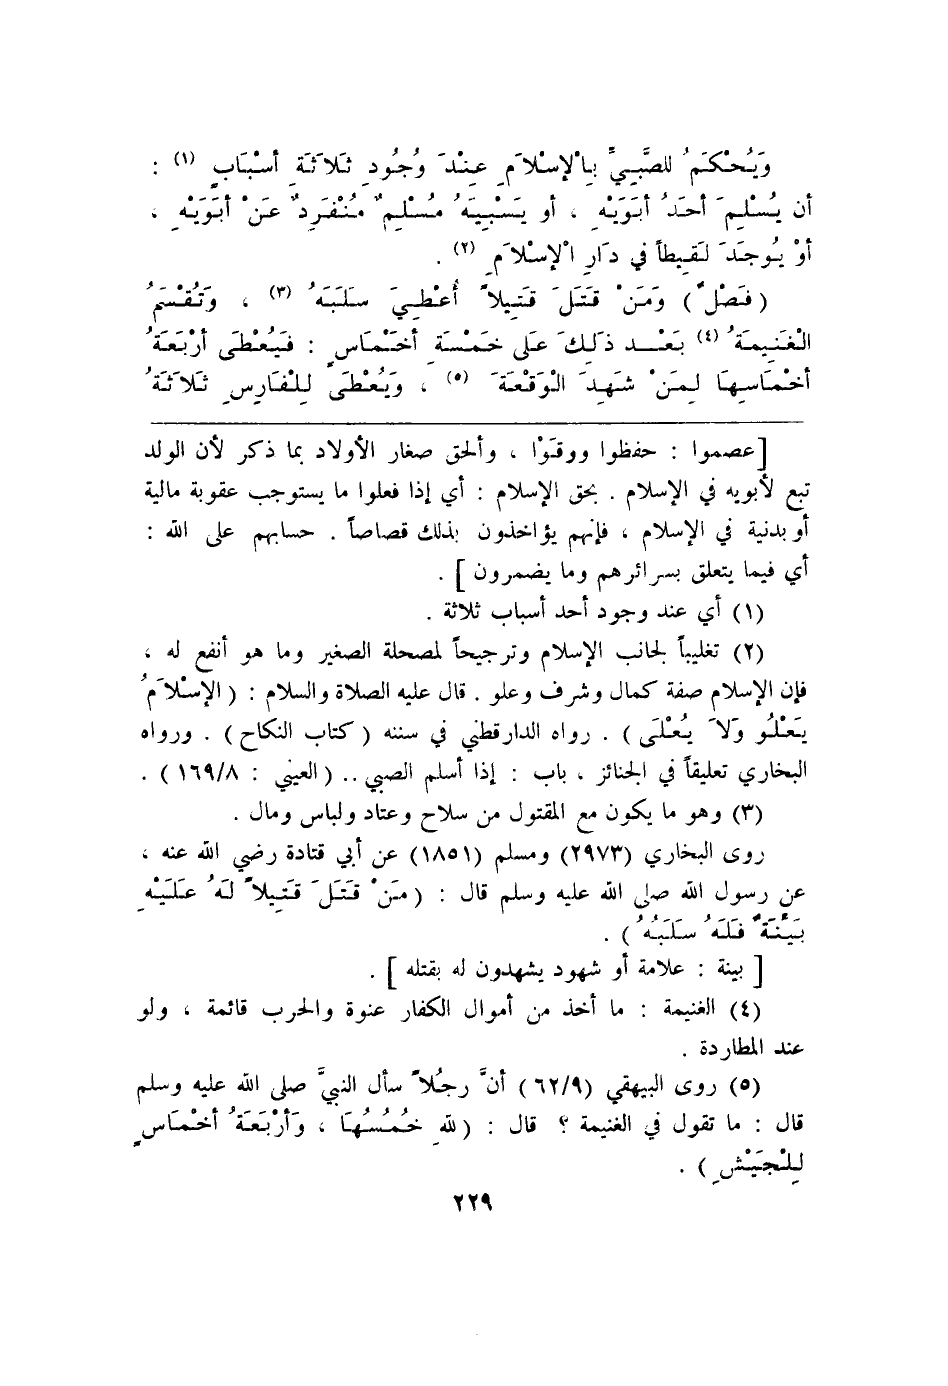 وَيُحْكَمُ للصَّبِيِّ بِالْإِسْلاَمِ عِنْدَ وُجُودِ ثَلاَثَةِ أسْبَابٍ (١) :
أن يُسْلِمَ أحَدُ أبَوَيْهِ ، أو يَسْبِيَهُ مُسْلِمٌ مُنْفَرِدٌ عَنْ أبَوَيْهِ ،
أوْ يُوجَدَ لَقِيطاً في دَارِ الْإِسْلاَمِ (٢) .
( فَصْلٌ ) وَمَنْ قَتَلَ قَتِيلاً أُعْطِيَ سَلَبَهُ (٣) ، وَتُقْسَمُ
الْغَنِيمَةُ (٤) بَعْــد ذلِكَ عَلَى خَمْسَةِ أخْمَاسٍ : فَيُعْطَى أرْبَعَةُ
أخْمَاسِهَا لِمَنْ شَهِدَ الْوَقْعَةَ (٥) ، وَيُعْطَى لِلْفَارِسِ ثَلاَثَةُ
[عصموا : حفظوا ووقَوْا ، وألحق صغار الأولاد بما ذكر لأن الولد
تبع لأبويه في الإسلام . بحق الإسلام : أي إذا فعلوا ما يستوجب عقوبة مالية
أو بدنية في الإسلام ، فإنهم يؤاخذون بذلك قصاصاً . حسابهم على الله :
أي فيما يتعلق بسرائرهم وما يضمرون ] .
(١) أي عند وجود أحد أسباب ثلاثة .
(٢) تغليباً لجانب الإسلام وترجيحاً لمصحلة الصغير وما هو أنفع له ،
فإن الإسلام صفة كمال وشرف وعلو . قال عليه الصلاة والسلام : ( الإسْلاَمُ
يَعْلُو وَلاَ يُعْلَى ) . رواه الدارقطني في سننه ( كتاب النكاح ) . ورواه
البخاري تعليقاً في الجنائز ، باب : إذا أسلم الصبي .. ( العيني : ١٦٩/٨ ) .
(٣) وهو ما يكون مع المقتول من سلاح وعتاد ولباس ومال .
روى البخاري (٢٩٧٣) ومسلم (١٨٥١) عن أبي قتادة رضي الله عنه ،
عن رسول الله صلى الله عليه وسلم قال : ( مَنْ قَتَلَ قَتِيلاً لَهُ عَلَيْهِ
بَيِّنَةٌ فَلَهُ سَلَبُهُ ) .
[ بينة : علامة أو شهود يشهدون له بقتله ] .
(٤) الغنيمة : ما أخذ من أموال الكفار عنوة والحرب قائمة ، ولو
عند المطاردة .
(٥) روى البيهقي (٦٢/٩) أنَّ رجُلاً سأل النبيَّ صلى الله عليه وسلم
قال : ما تقول في الغنيمة ؟ قال : ( للهِ خُمُسُهَا ، وَأرْبَعَةُ أخْمَاسٍ
لِلْجَيْشِ ) .
٢٢٩